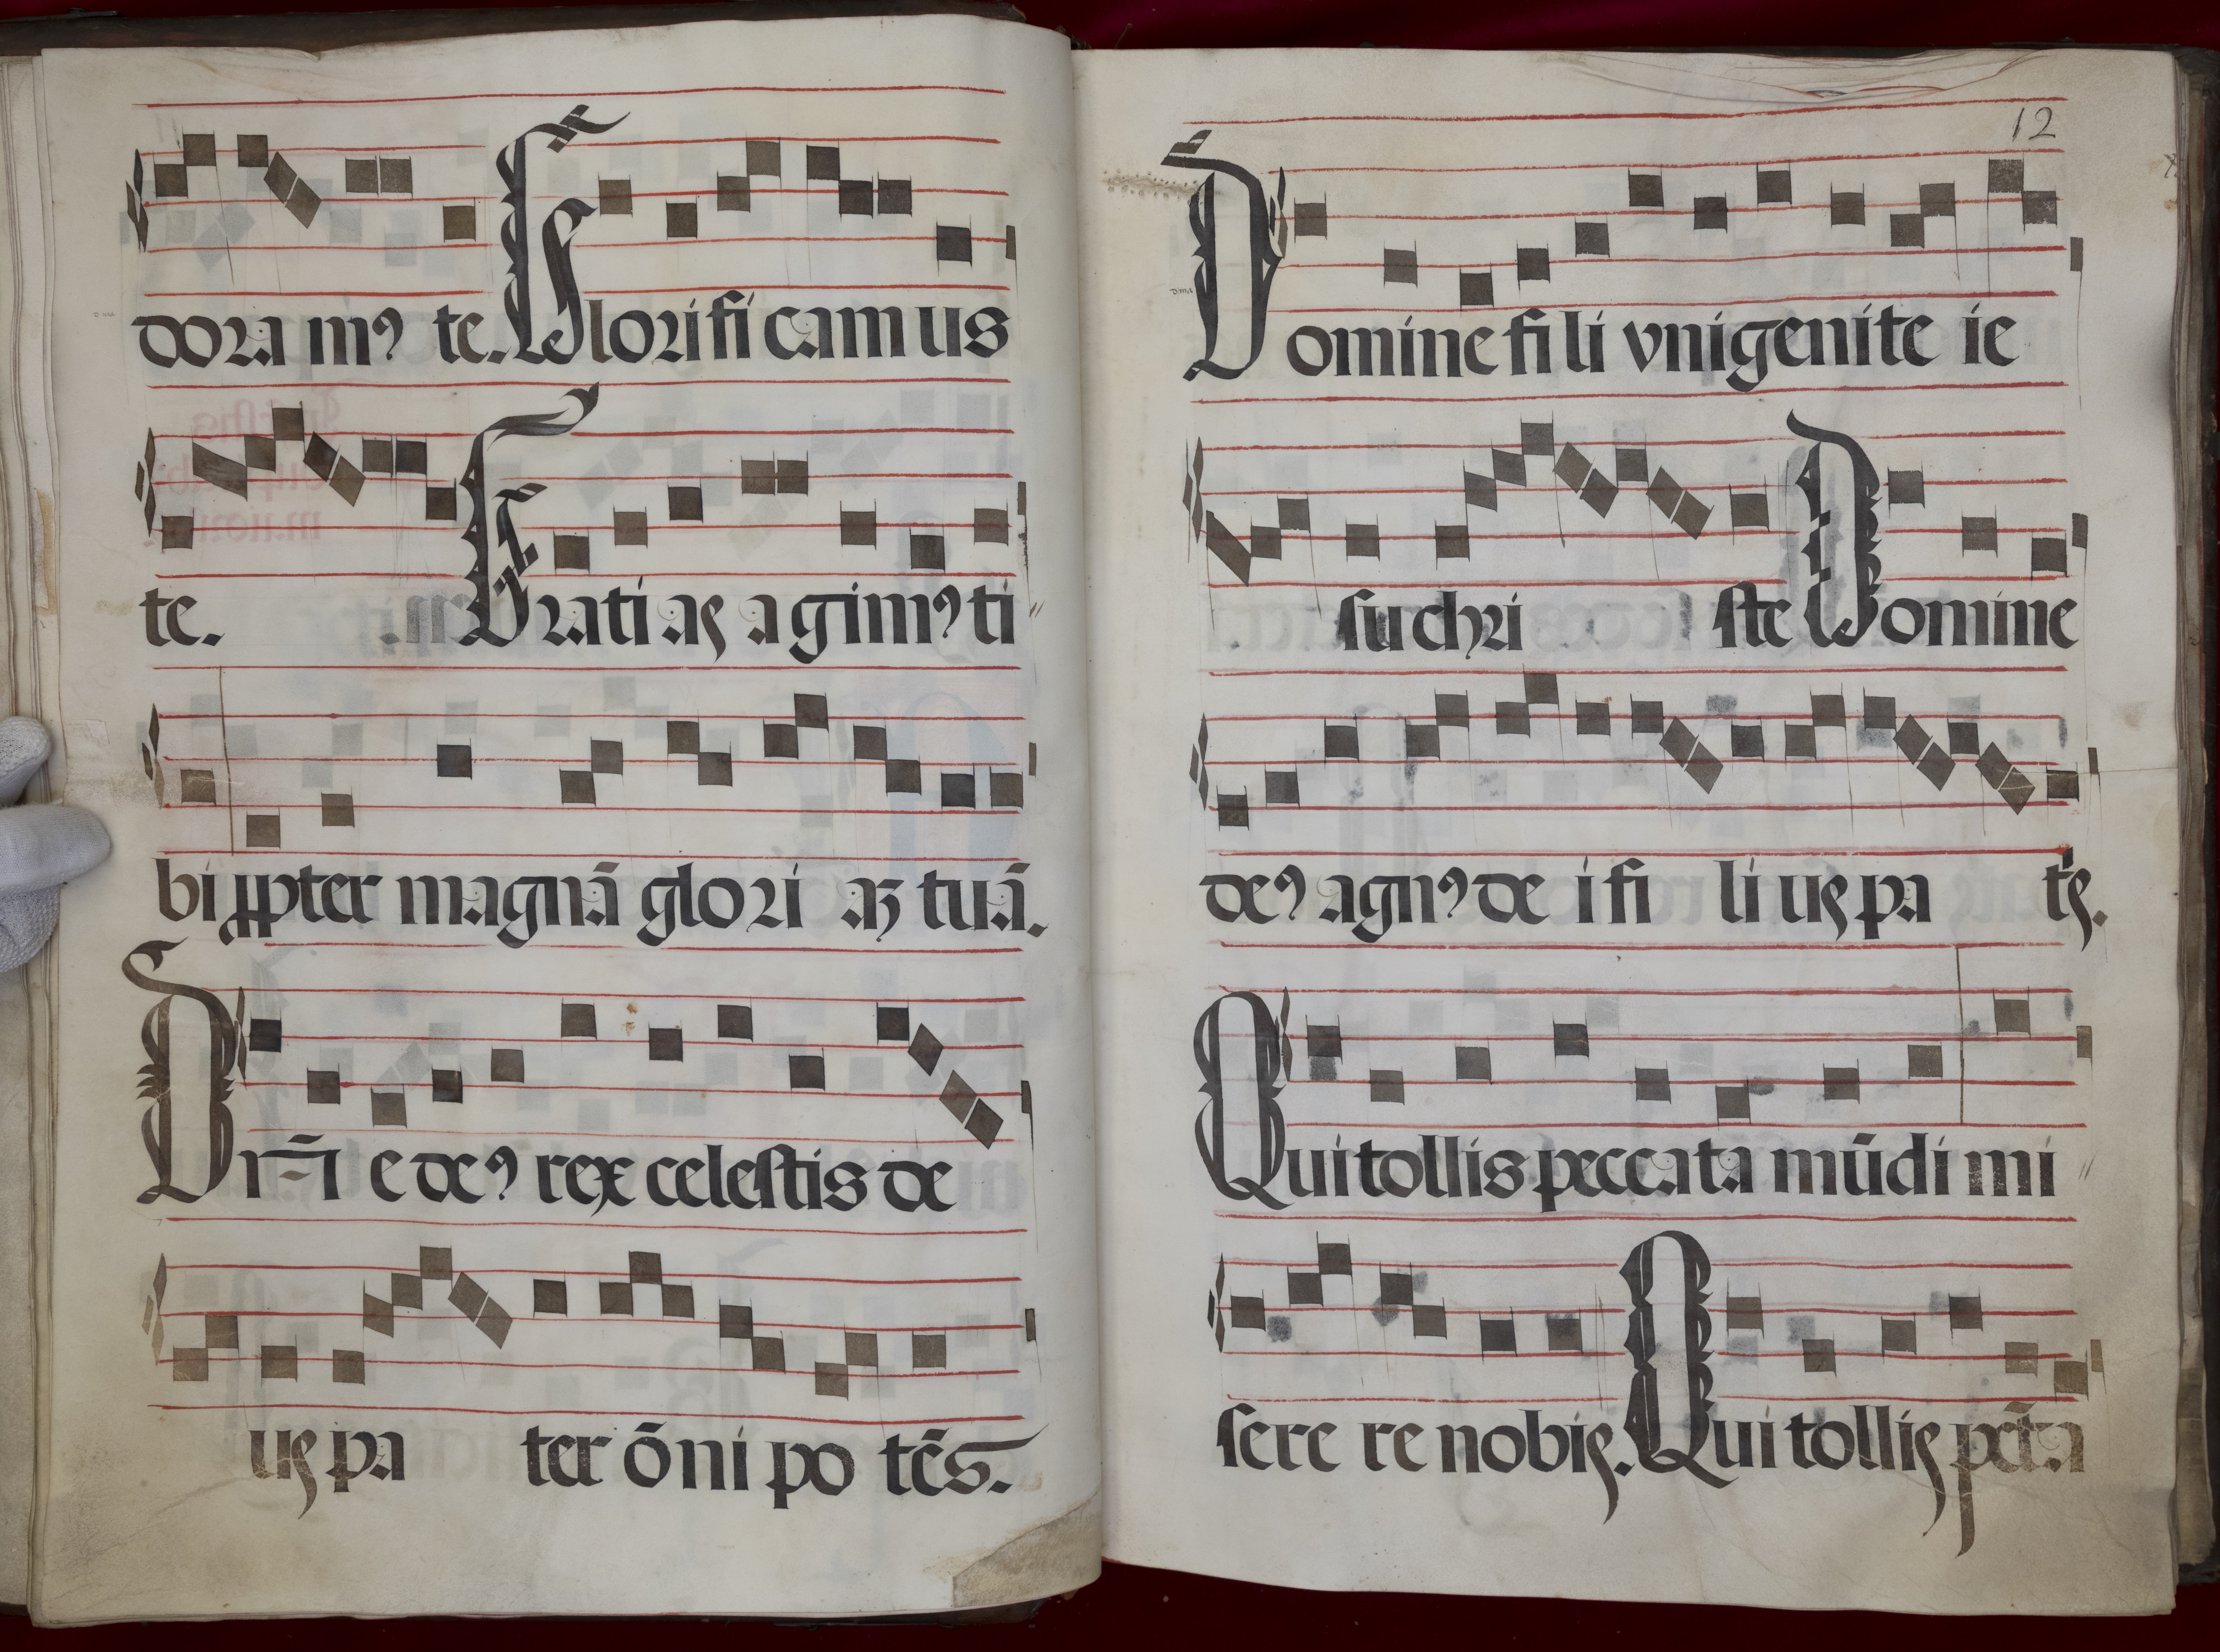 dora mꝰ te. Glorificamus
te. Gratias agimꝰ ti
bi ꝓpter magnā glori aʒ tuā.
Dn̄i e deꝰ rex celestis de
us pa ter ōni po tēs.
12
Domine fili vnigenite ie
su chri ste Domine
deꝰ agnꝰ de i fi li us pa tꝭs.
Qui tollis peccata mūdi mi
sere re nobis. Qui tollis pctā